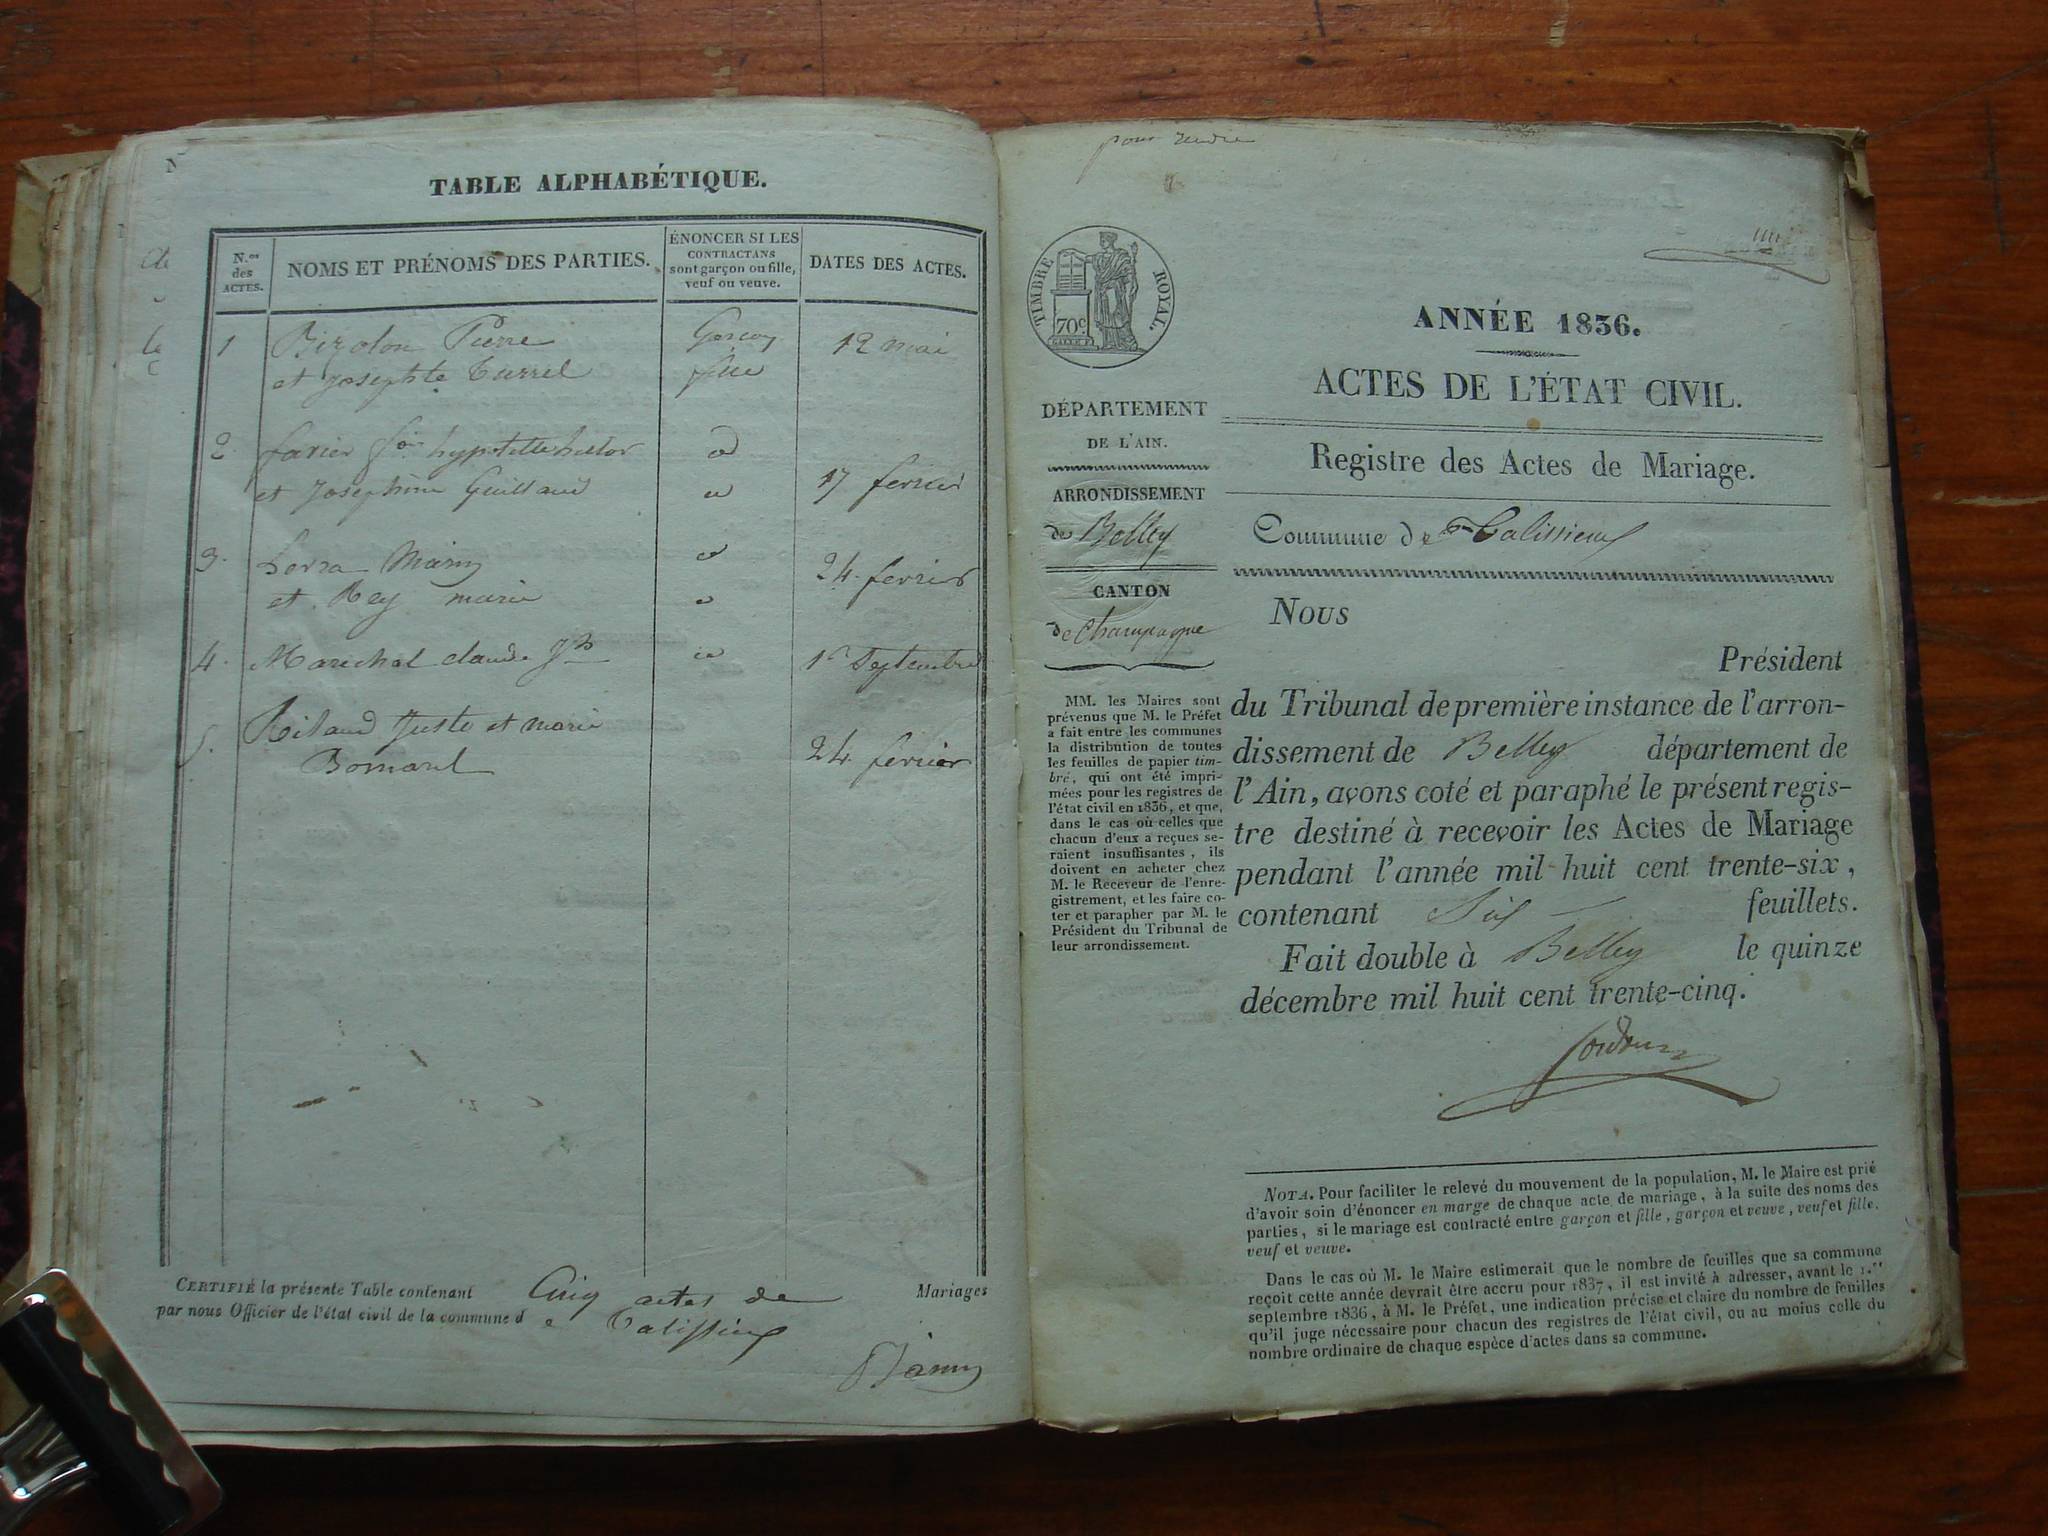 TABLE ALPHABÉTIQUE.
N.os des ACTES.
NOMS ET PRÉNOMS DES PARTIES.
ÉNONCER SI LES
CONTRACTANS
sont garçon ou fille,
veuf ou veuve.
DATES DES ACTES.
1 Bizolon Pierre Garcon 12 mai
et Josephte Turrel fille
2 farier hypolitte
et Josephine Guillaud 17 fevrier
3. Serra Marin 24. fevrier
et Rey marie
4. Marechal claude Jh 1r Septembre
5. Rilaud Juste et marie
Bornard 24 fevrier
CERTIFIÉ la présente Table contenant Cinq actes de Mariages
par nous Officier de l'état civil de la commune de Talissieux
pour
TIMBRE ROYAL.
70c
ANNÉE 1836.
ACTES DE L'ÉTAT CIVIL.
Registre des Actes de Mariage.
Commune de Talissieux
DÉPARTEMENT
DE L'AIN.
ARRONDISSEMENT
de Belley
CANTON
de Champagne
MM. les Maires sont
prévenus que M. le Préfet
a fait entre les communes
la distribution de toutes
les feuilles de papier tim-
bré, qui ont été impri-
mées pour les registres de
l'état civil en 1836, et que,
dans le cas où celles que
chacun d'eux a reçues se-
raient insuffisantes, ils
doivent en acheter chez
M. le Receveur de l'enre-
gistrement, et les faire co-
ter et parapher par M. le
Président du Tribunal de
leur arrondissement.
NOUS
Président
du Tribunal de première instance de l'arron-
dissement de Belley département de
l'Ain, avons coté et paraphé le présent regis-
tre destiné à recevoir les Actes de Mariage
pendant l'année mil huit cent trente-six,
contenant Six feuillets.
Fait double à Belley le quinze
décembre mil huit cent trente-cinq.
NOTA. Pour faciliter le relevé du mouvement de la population, M. le Maire est prié
d'avoir soin d'énoncer en marge de chaque acte de mariage, à la suite des noms des
parties, si le mariage est contracté entre garçon et fille, garçon et veuve, veuf et fille,
veuf et veuve.
Dans le cas où M. le Maire estimerait que le nombre de feuilles que sa commune
reçoit cette année devrait être accru pour 1837, il est invité à adresser, avant le 1.er
septembre 1836, à M. le Préfet, une indication précise et claire du nombre de feuilles
qu'il juge nécessaire pour chacun des registres de l'état civil, ou au moins celle du
nombre ordinaire de chaque espèce d'actes dans sa commune.